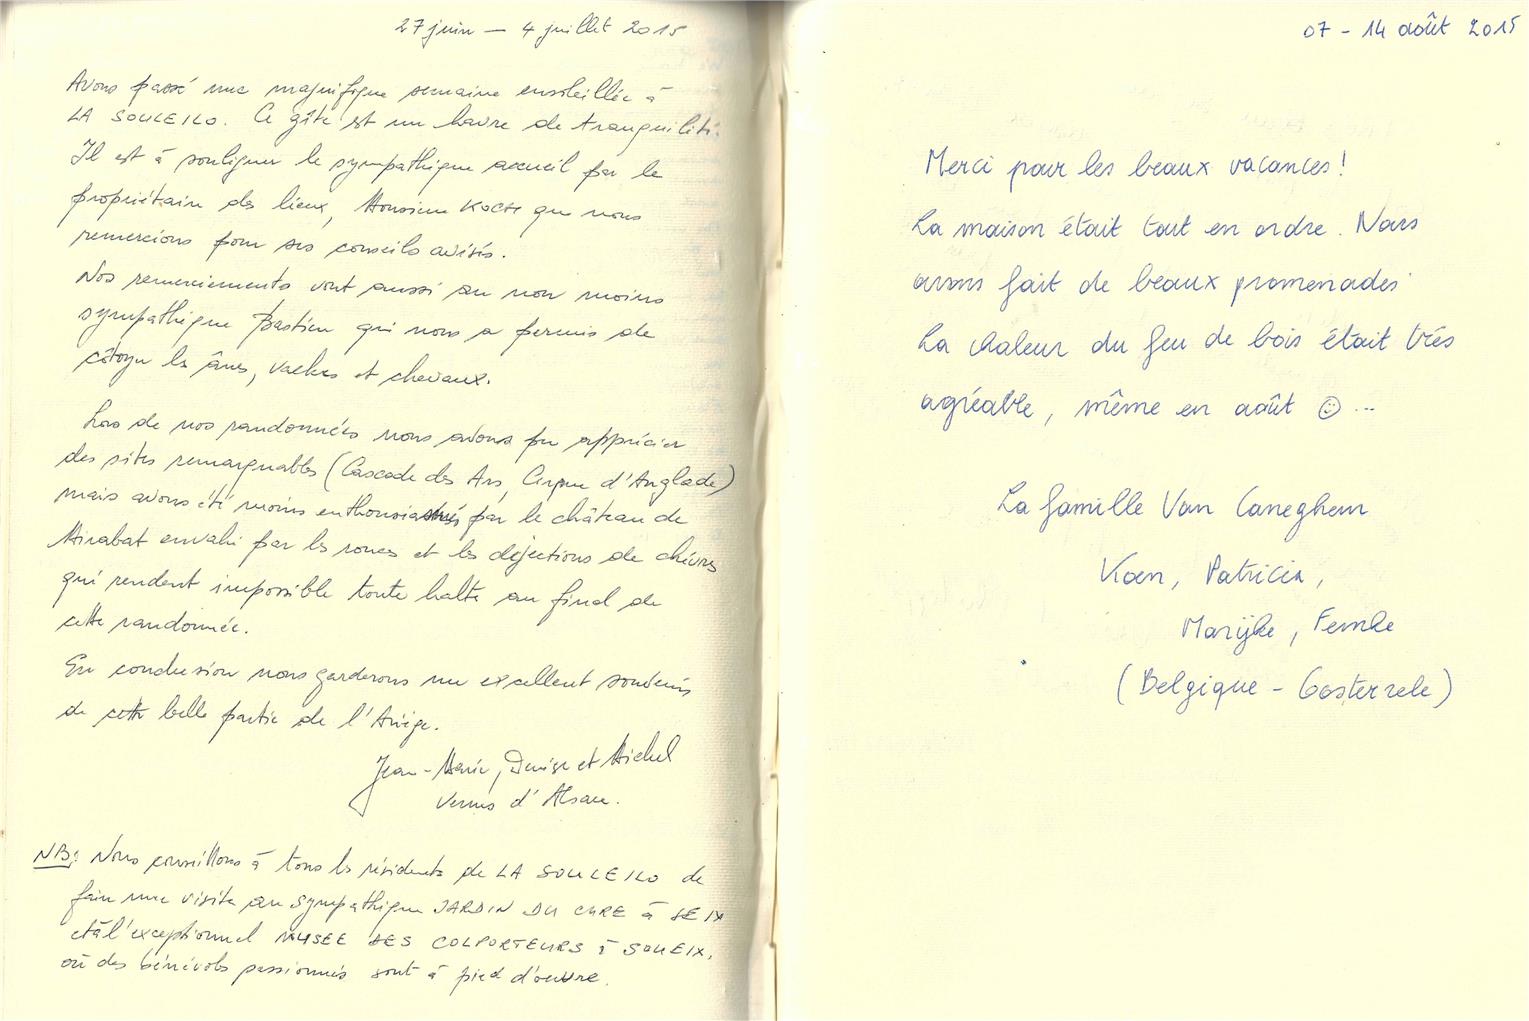 27 juin — 4 juillet 2015
Avons passé une magnifique semaine ensoleillée à
LA SOULEILO. Ce gîte est un havre de tranquilité.
Il est à souligner le sympathique accueil par le
propriétaire des lieux, Monsieur que nous
remercions pour ses conseils avisés.
Nos remerciements vont aussi au non moins
sympathique Bastien qui nous a permis de
côtoyer les ânes, vaches et chevaux.
Lors de nos randonnées nous avons pu apprécier
des sites remarquables (Cascade des Ars, Cirque d'Anglade)
mais avons été moins enthousiasmés par le château de
Mirabat envahi par les ronces et les déjections de chèvres
qui rendent impossible toute halte au final de
cette randonnée.
En conclusion nous garderons un excellent souvenir
de cette belle partie de l'Ariège.
Jean-Marie, Denise et Michel
venus d'Alsace.
NB: Nous conseillons à tous les résidents de LA SOULEILO de
faire une visite au sympathique JARDIN DU CURE à SEIX
et à l'exceptionnel MUSEE DES COLPORTEURS à SOUEIX,
où des bénévoles passionnés sont à pied d'œuvre.
07 - 14 août 2015
Merci pour les beaux vacances!
La maison était tout en ordre. Nous
avons fait de beaux promenades
La chaleur du feu de bois était très
agréable, même en août ☺...
La famille Van Caneghem
Koen, Patricia,
Marijke, Femke
(Belgique - Oosterzele)